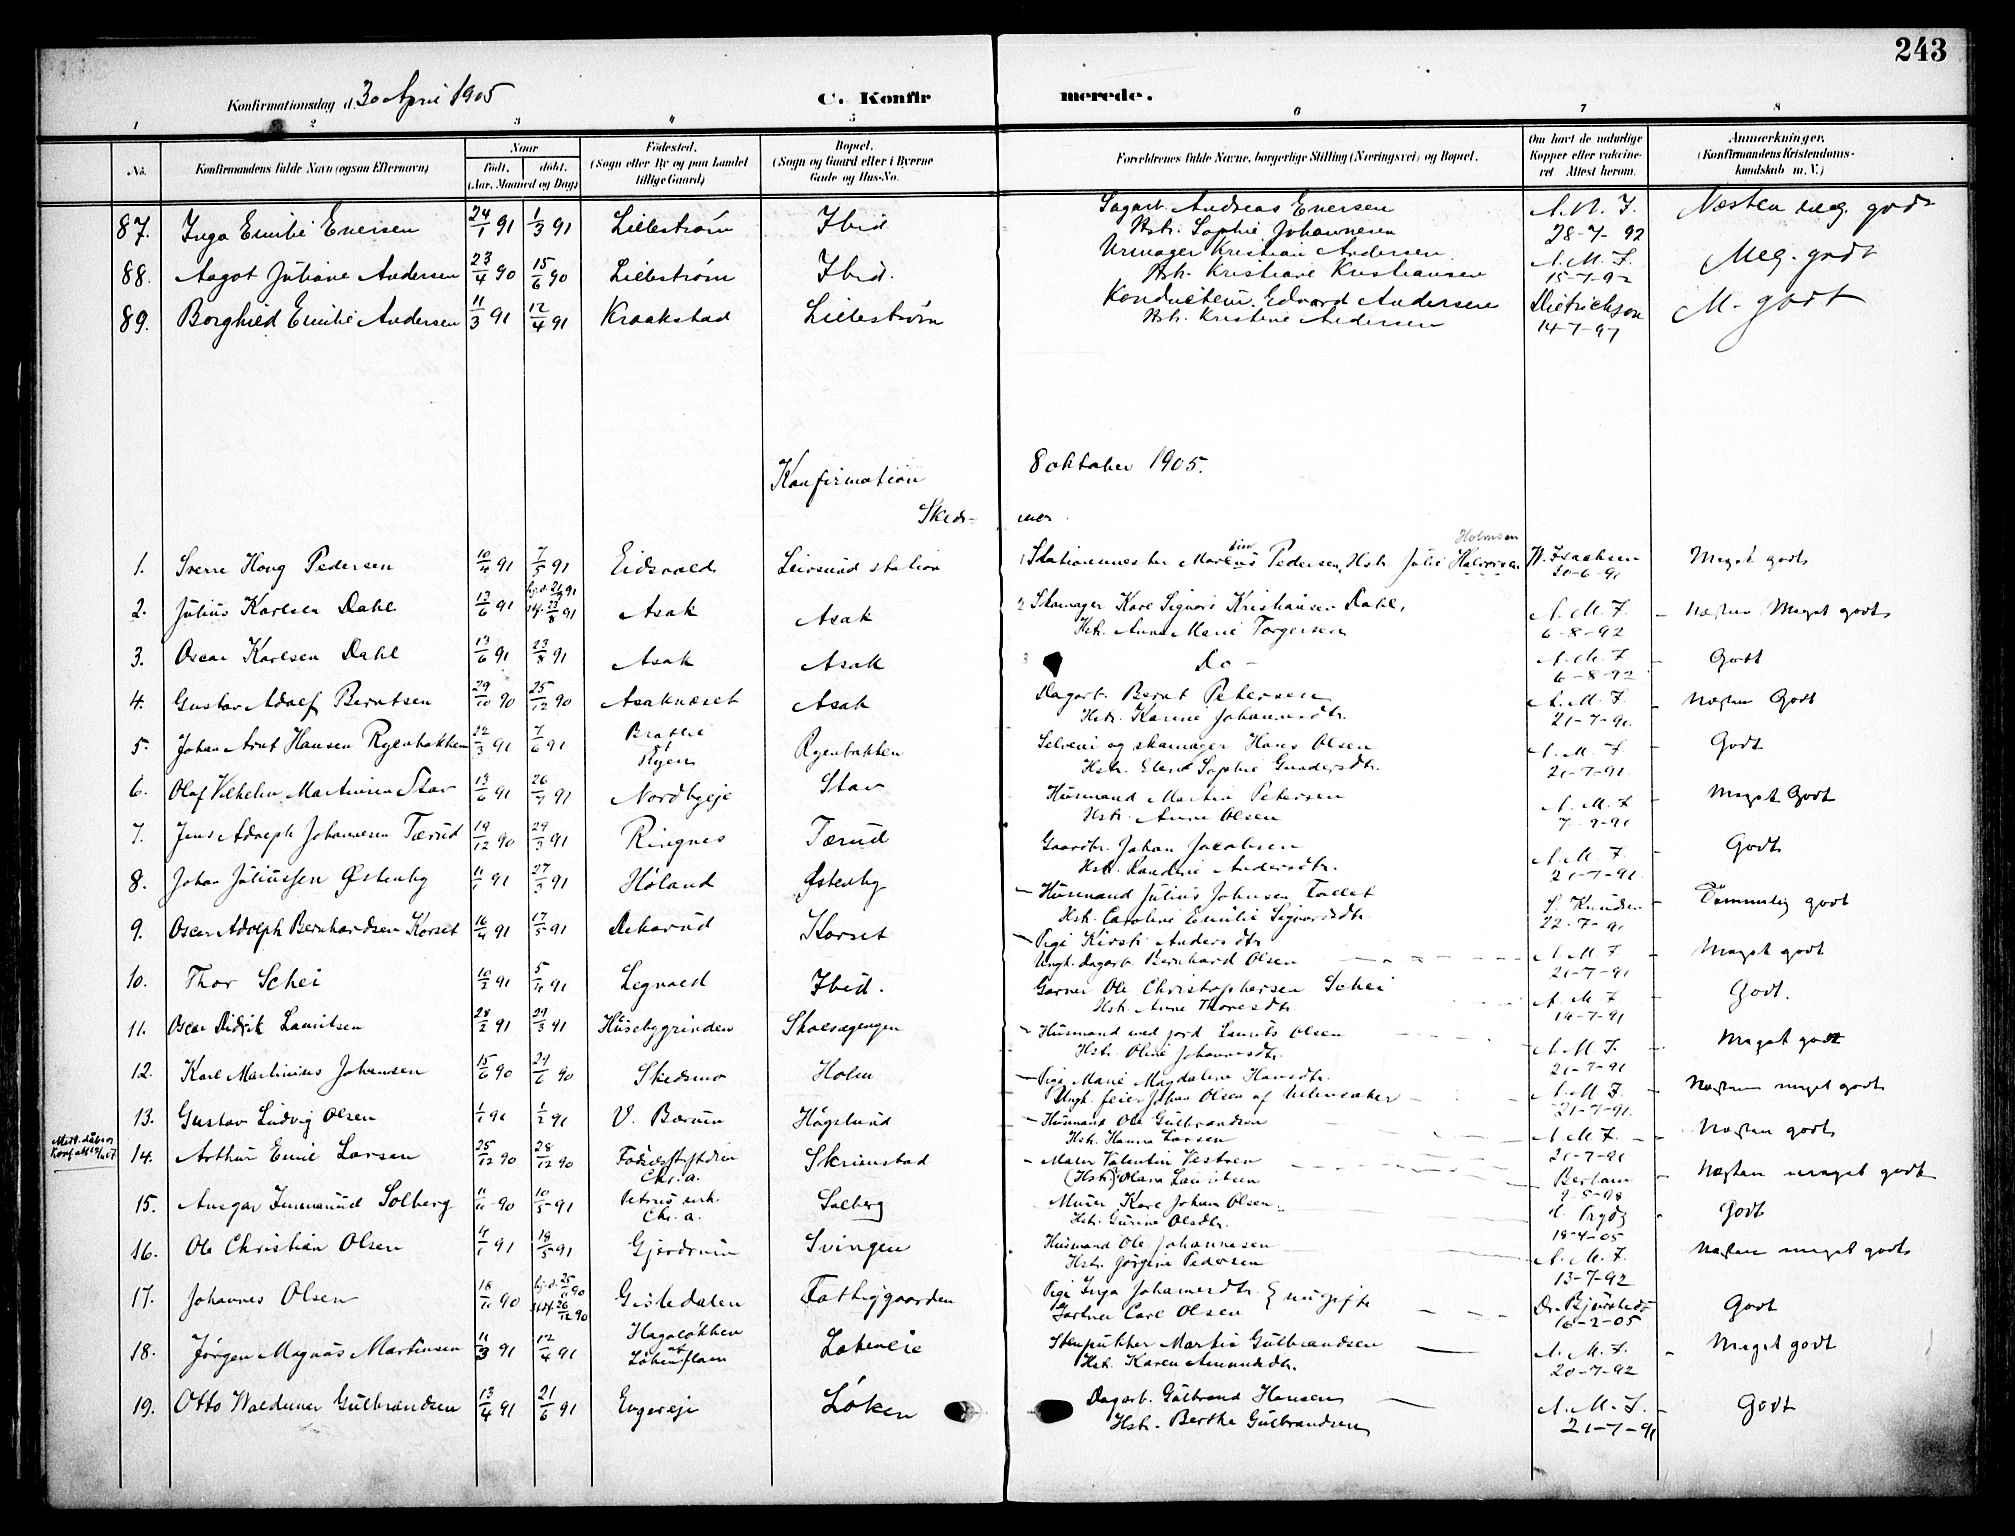 243
Konfirmationsdag d. 30 April 1905 C. Konfirmerede.
1 2 3 4 5 6 7 8
No. Konfirmandens fulde Navn (ogsaa Efternavn) Naar født. døbt. (Aar, Maaned og Dag) Fødested. (Sogn eller By og paa Landet tillige Gaard) Bopæl. (Sogn og Gaard eller i Byerne Gade og Hus-No. Forældrenes fulde Navne, borgerlige Stilling (Næringsvei) og Bopæl. Om havt de naturlige Kopper eller vaccineret Attest herom. Anmærkninger. (Konfirmandens Kristendomskundskab m. V.)
87. Inga Emilie Enersen 24/1 91 1/3 91 Lillestrøm Ibid Sagarb. Andreas Enersen
Hstr. Sophie Johannesen 28-7-92 Næsten meg. godt
88. Aagot Juliane Andersen 23/4 90 15/6 90 Lillestrøm Ibid. Urmager Kristian Andersen.
Hstr. Kristiane Kristiansen A. M. F. 15-7-92 Meg. godt
89. Borghild Emilie Andersen 11/3 91 12/4 91 Kraakstad Lillestrøm Konduktør Edvard Andersen
Hstr. Kristine Andersen Dietrichson 14-7-97 M. godt
Konfirmation 8 oktober 1905.
Skedsmo.
1. Sverre Houg Pedersen 10/4 91 7/5 91 Eidsvold Leirsund station Stationmester Pedersen, Hstr. Julie Halvorsen Holmsen 20-6-91 Meget godt
2. Julius Karlsen Dahl 13/6 91 hjd. 21/6 91 23/8 91 Asak Asak Skomager Karl Signori Kristiansen Dahl,
Hstr. Anne Marie Torgersen A. M. F. 6-8-92 Næsten Meget godt
3. Oscar Karlsen Dahl 13/6 91 23/8 91 Asak Asak Do - A. M. F. 6-8-92 Godt
4. Gustav Adolf Berntsen 29/10 90 25/12 90 Asaknæset Asak Dagarb. Bernt Petersen
Hstr. Karine Johannesdtr. A. M. F. 21-7-91 Næsten Godt
5. Johan Arnt Hansen Ryenbakken 22/3 91 7/6 91 Ryen Ryenbakken Selveier og skomager Hans Olsen
Hstr. Elene Sophie Gundersdtr. A. M. F. 21-7-91 Godt
6. Olaf Vilhelm Martinsen Stav 13/6 91 26/7 91 Nordbyeje Stav Husmand Martin Petersen
Hstr. Anne Olsen A. M. F. 7-9-91 Meget Godt
7. Jens Adolph Johannesen Tærud 19/12 90 29/3 91 Ringnes Tærud Gaardbr. Johan Jacobsen
Hstr. Randine Andersdtr. A. M. F. 21-7-91 Godt
8. Johan Juliussen Østenby 11/1 91 27/3 91 Høland Østenby Husmand Julius Johnsen
Hstr. Caroline Emilie Sigvardsdtr S. Knudsen 22-7-91 Temmelig godt
9. Oscar Adolph Bernhardsen Korset 16/4 91 17/5 91 Korset Pige Kirsti Andersdtr
Ungk. Dagarb. Bernhard Olsen A. M. F. 21-7-91 Meget godt
10. Thor Schei 10/2 91 5/4 91 Legnald Ibid. Garver Ole Christophersen Schei
Hstr. Anne Thoresdtr A. M. F. 14-7-91 Godt.
11. Oscar Didrik Lauritsen 28/2 91 29/3 91 Husebygrinden Skolesagengen Husmand med jord Laurits Olsen
Hstr. Oline Johannesdtr. A. M. F. 21-7-91 Meget godt
12. Karl Martinius Johansen 15/6 90 29/6 90 Skedsmo Holm Pige Marie Magdalene Hansdtr.
Ungk. feier Johan Olsen af Ullensaker A. M. F. 21-7-91 Næsten meget godt
13. Gustav Ludvig Olsen 1/1 91 1/2 91 V. Bærum Hogslund Husmand Ole Gulbrandsen
Hstr. Hanna Larsen A. M. F. 21-7-91 Næsten godt
14. Arthur Emil Larsen 25/12 90 28/12 90 Fødselsstiftelsen Chr.a. Skrimstad Maler Valentin Vestren
(Hstr) Olava Lauritsen 2-5-98 Næsten meget godt
15. Ansgar Immanuel Solberg 11/11 90 10/5 91 Petrus mh. Chr.a. Solberg Murer Karl Johan Olsen
Hstr. Gurine Olsdtr. 19-4-05 Godt
16. Ole Christian Olsen 4/1 91 18/5 91 Gjerdrum Svingen Husmand Ole Johannesen
Hstr. Jørgine Pedersen A. M. F. 13-7-92 Næsten meget godt
17. Johannes Olsen 18/11 90 hjd. 25/11 90 26/12 90 Gistedalen Fattiggaarden Pige Inga Johannesdtr. } ugifte
Gartner Carl Olsen Dr. Bjørnstad 16-2-05 Godt
18. Jørgen Magnus Martinsen 11/3 91 12/4 91 Hagaløkken Løkeneie Stenpukker Martin Gulbrandsen
Hstr. Karen Amundsdtr. A. M. F. 20-7-92 Meget godt
19. Otto Waldemar Gulbrandsen 13/4 91 21/6 91 Engereje Løken Dagarb. Gulbrand Hansen
Hstr. Berthe Gulbrandsen A. M. F. 21-7-91 Godt